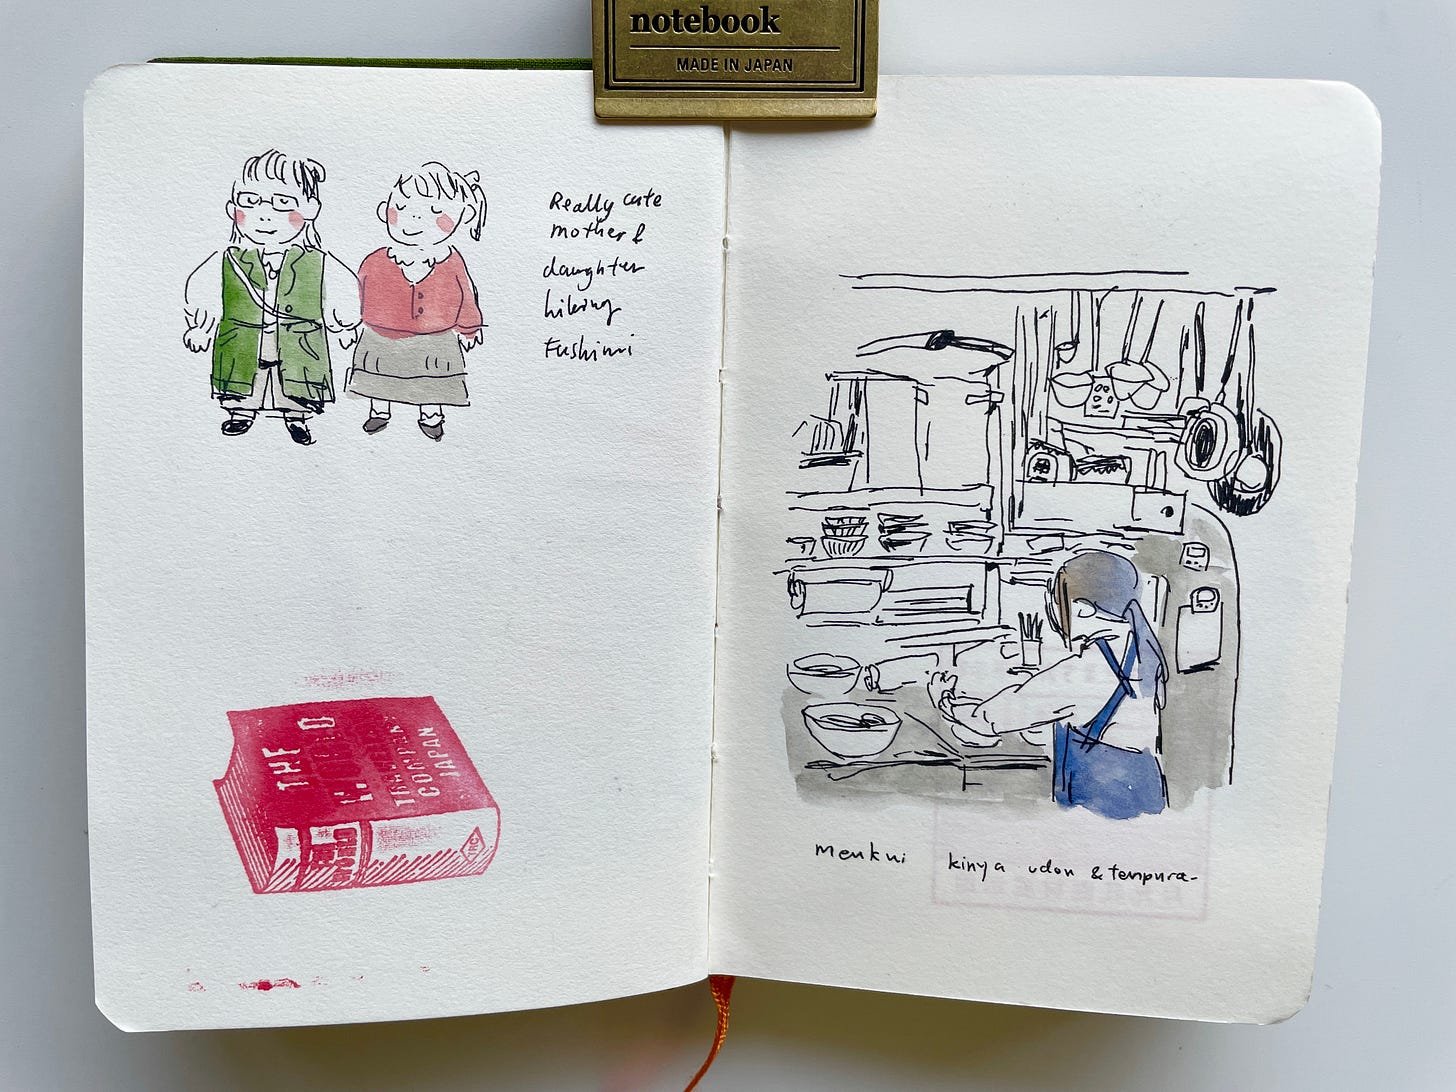 notebook
MADE IN JAPAN
Really cute
mother &
daughter
hiking
Fushimi
THE
COMPANY
JAPAN
menkui kinya udon & tempura-